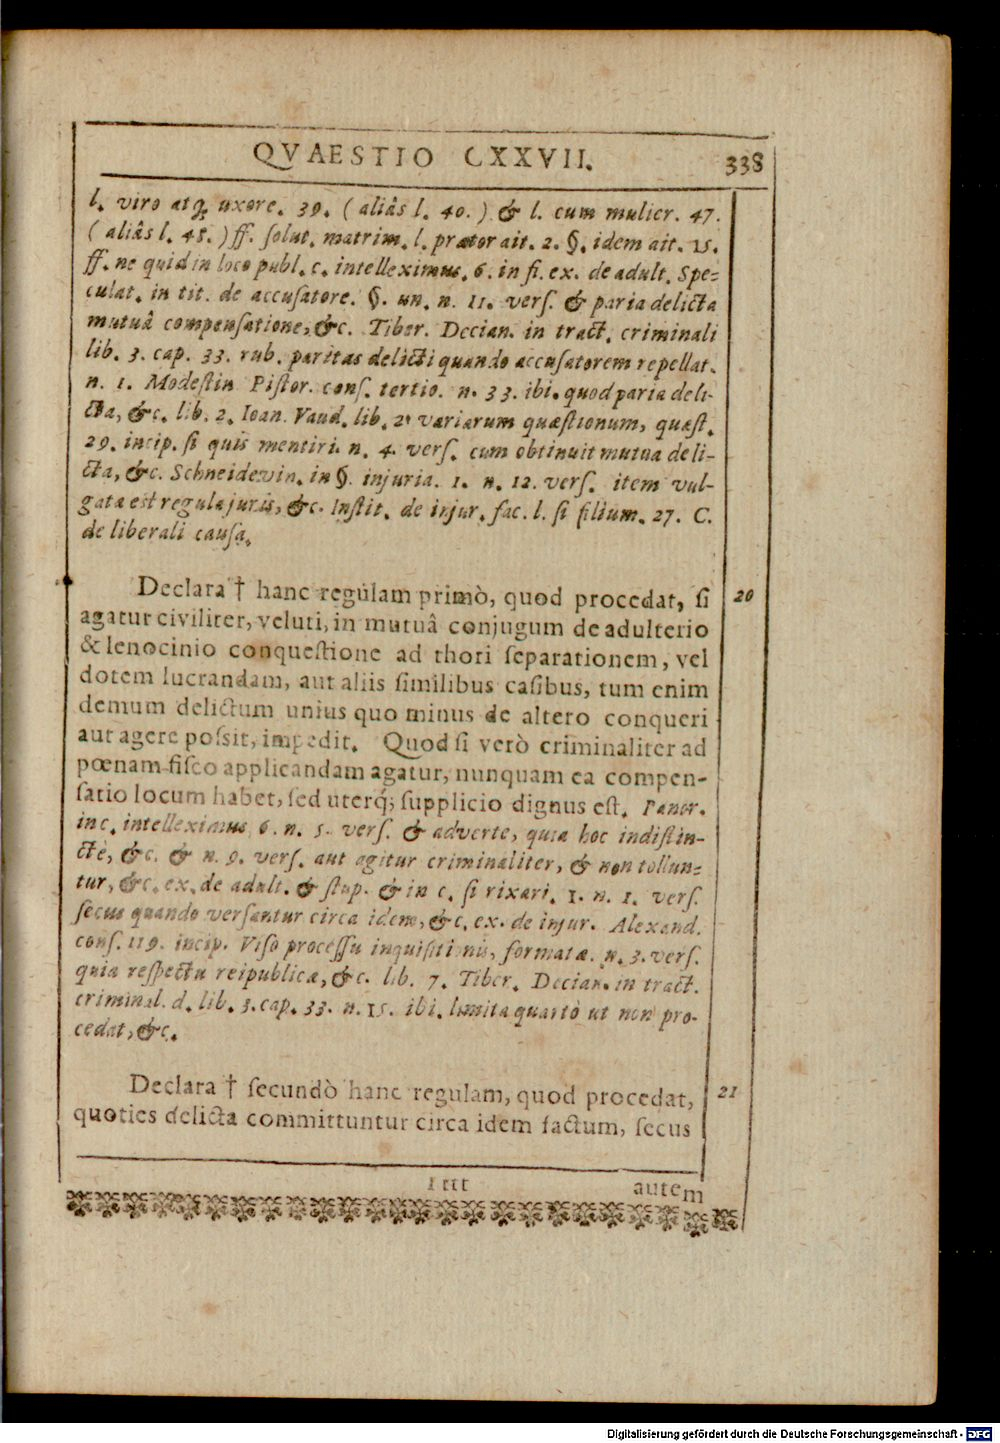 QVAESTIO CXXVII. 338
l. viro atq; uxore. 39. (aliâs l. 40.) & l. cum mulier. 47.
(aliâs l. 48.) ff. ſolut. matrim. l. prætor ait. 2. §. idem ait. 15.
ff. ne quid in loco publ. c. intelleximus. 6. in fi. ex. de adult. Spe-
culat. in tit. de accuſatore. §. un. n. 11. verſ. & paria delicta
mutuâ compenſatione, &c. Tiber. Decian. in tract. criminali
lib. 3. cap. 33. rub. paritas delicti quando accuſatorem repellat.
n. 1. Modeſtin Piſtor. conſ. tertio. n. 33. ibi. quod paria deli-
cta, &c. lib. 2. Ioan. Vaud. lib. 2. variarum quæſtionum, quæſt.
29. incip. ſi quis mentiri. n. 4. verſ. cum obtinuit mutua deli-
cta, &c. Schneidevvin. in §. injuria. 1. n. 12. verſ. item vul-
gata eſt regula juris, &c. Inſtit. de injur. fac. l. ſi filium. 27. C.
de liberali cauſa.
Declara † hanc regulam primò, quod procedat, ſi 20
agatur civiliter, veluti, in mutuâ conjugum de adulterio
& lenocinio conqueſtione ad thori ſeparationem, vel
dotem lucrandam, aut aliis ſimilibus caſibus, tum enim
demum delictum unius quo minus de altero conqueri
aut agere poſsit, impedit. Quod ſi verò criminaliter ad
pœnam fiſco applicandam agatur, nunquam ea compen-
ſatio locum habet, ſed uterq; ſupplicio dignus eſt. Panor.
in c. intelleximus 6. n. 5. verſ. & adverte, quia hoc indiſtin-
ctè, &c. & n. 9. verſ. aut agitur criminaliter, & non tollun-
tur, &c. ex. de adult. & ſtup. & in c. ſi rixari. 1. n. 1. verſ.
ſecus quando verſantur circa idem, &c. ex. de injur. Alexand.
conſ. 119. incip. Viſo proceſſu inquiſitionis, formatæ. n. 3. verſ.
quia reſpectu reipublicæ, &c. lib. 7. Tiber. Decian. in tract.
criminal. d. lib. 3. cap. 33. n. 15. ibi. limita quartò ut non pro-
cedat, &c.
Declara † ſecundò hanc regulam, quod procedat, 21
quoties delicta committuntur circa idem factum, ſecus
autem
Digitalisierung gefördert durch die Deutsche Forschungsgemeinschaft - DFG